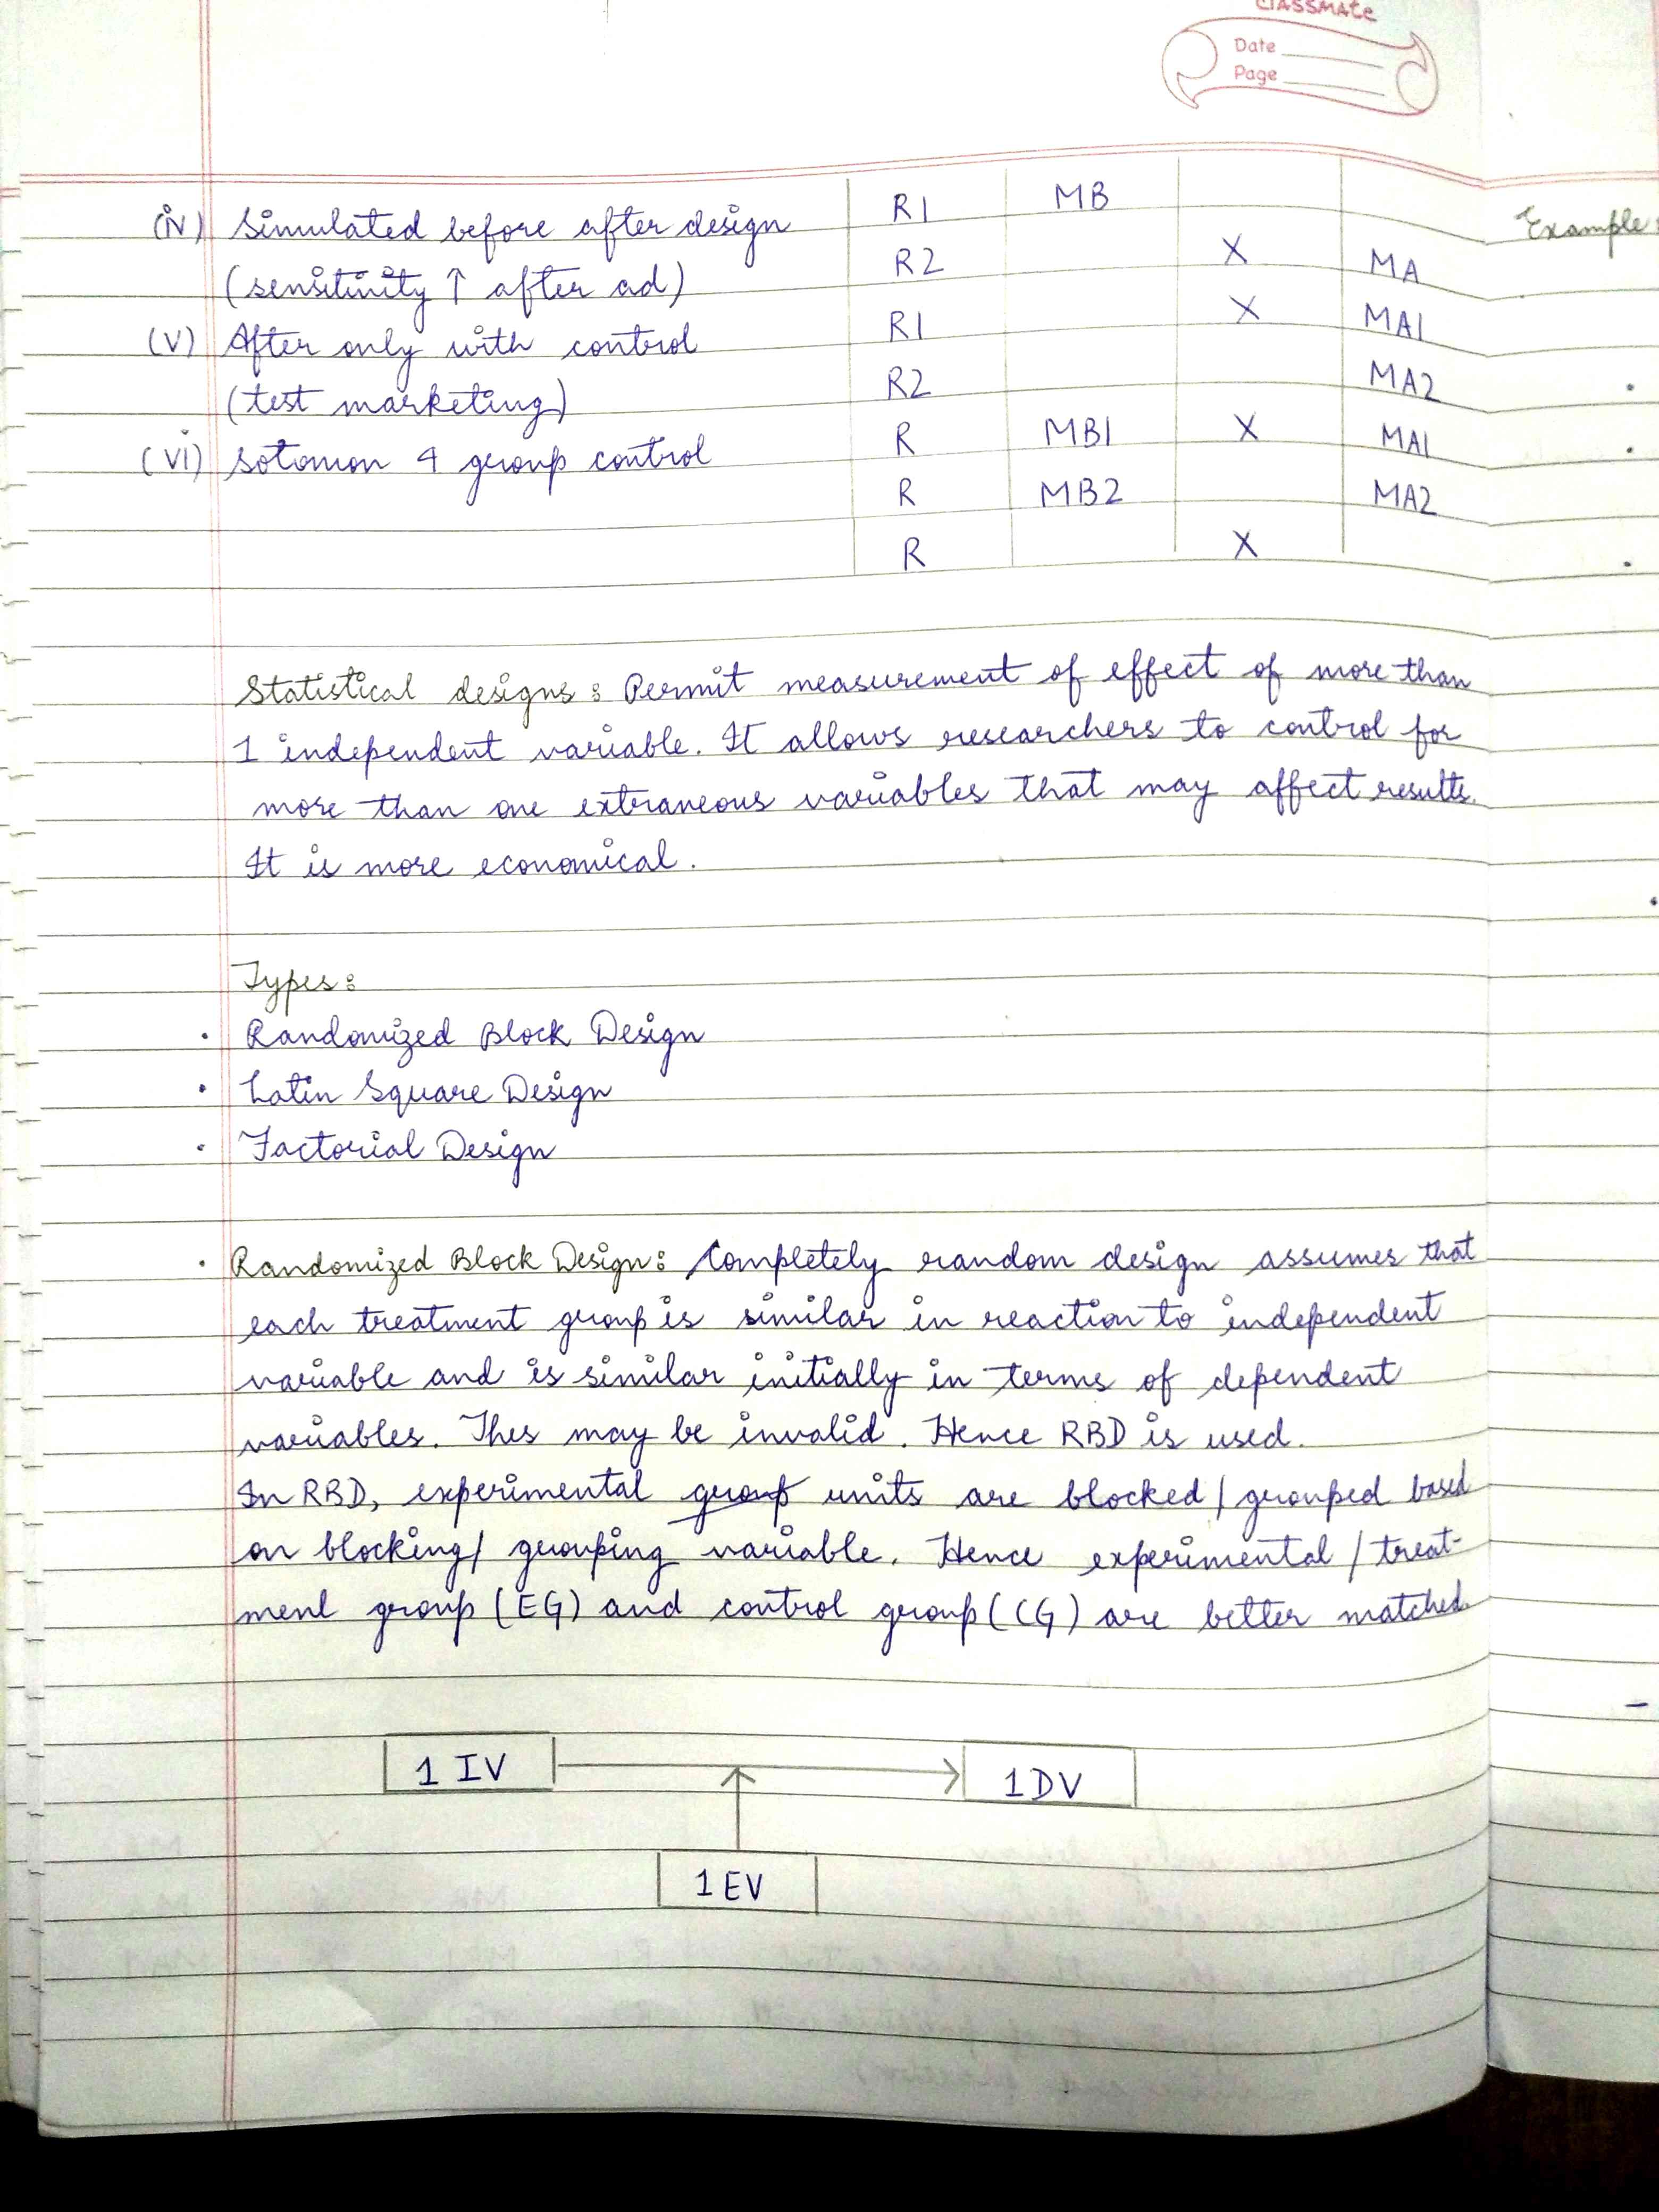 classmate
Date
Page
(iv) Simulated before after design R1 MB
(sensitivity ↑ after ad) R2 X MA
(v) After only with control R1 X MA1
(test marketing) R2 MA2
(vi) Solomon 4 group control R MB1 X MA1
R MB2 MA2
R X
Example:
Statistical designs: Permit measurement of effect of more than
1 independent variable. It allows researchers to control for
more than one extraneous variables that may affect results.
It is more economical.
Types:
• Randomized Block Design
• Latin Square Design
• Factorial Design
• Randomized Block Design: Completely random design assumes that
each treatment group is similar in reaction to independent
variable and is similar initially in terms of dependent
variables. This may be invalid. Hence RBD is used.
In RBD, experimental group units are blocked / grouped based
on blocking/ grouping variable. Hence experimental / treat-
ment group (EG) and control group (CG) are better matched
1 IV 1 DV
1 EV